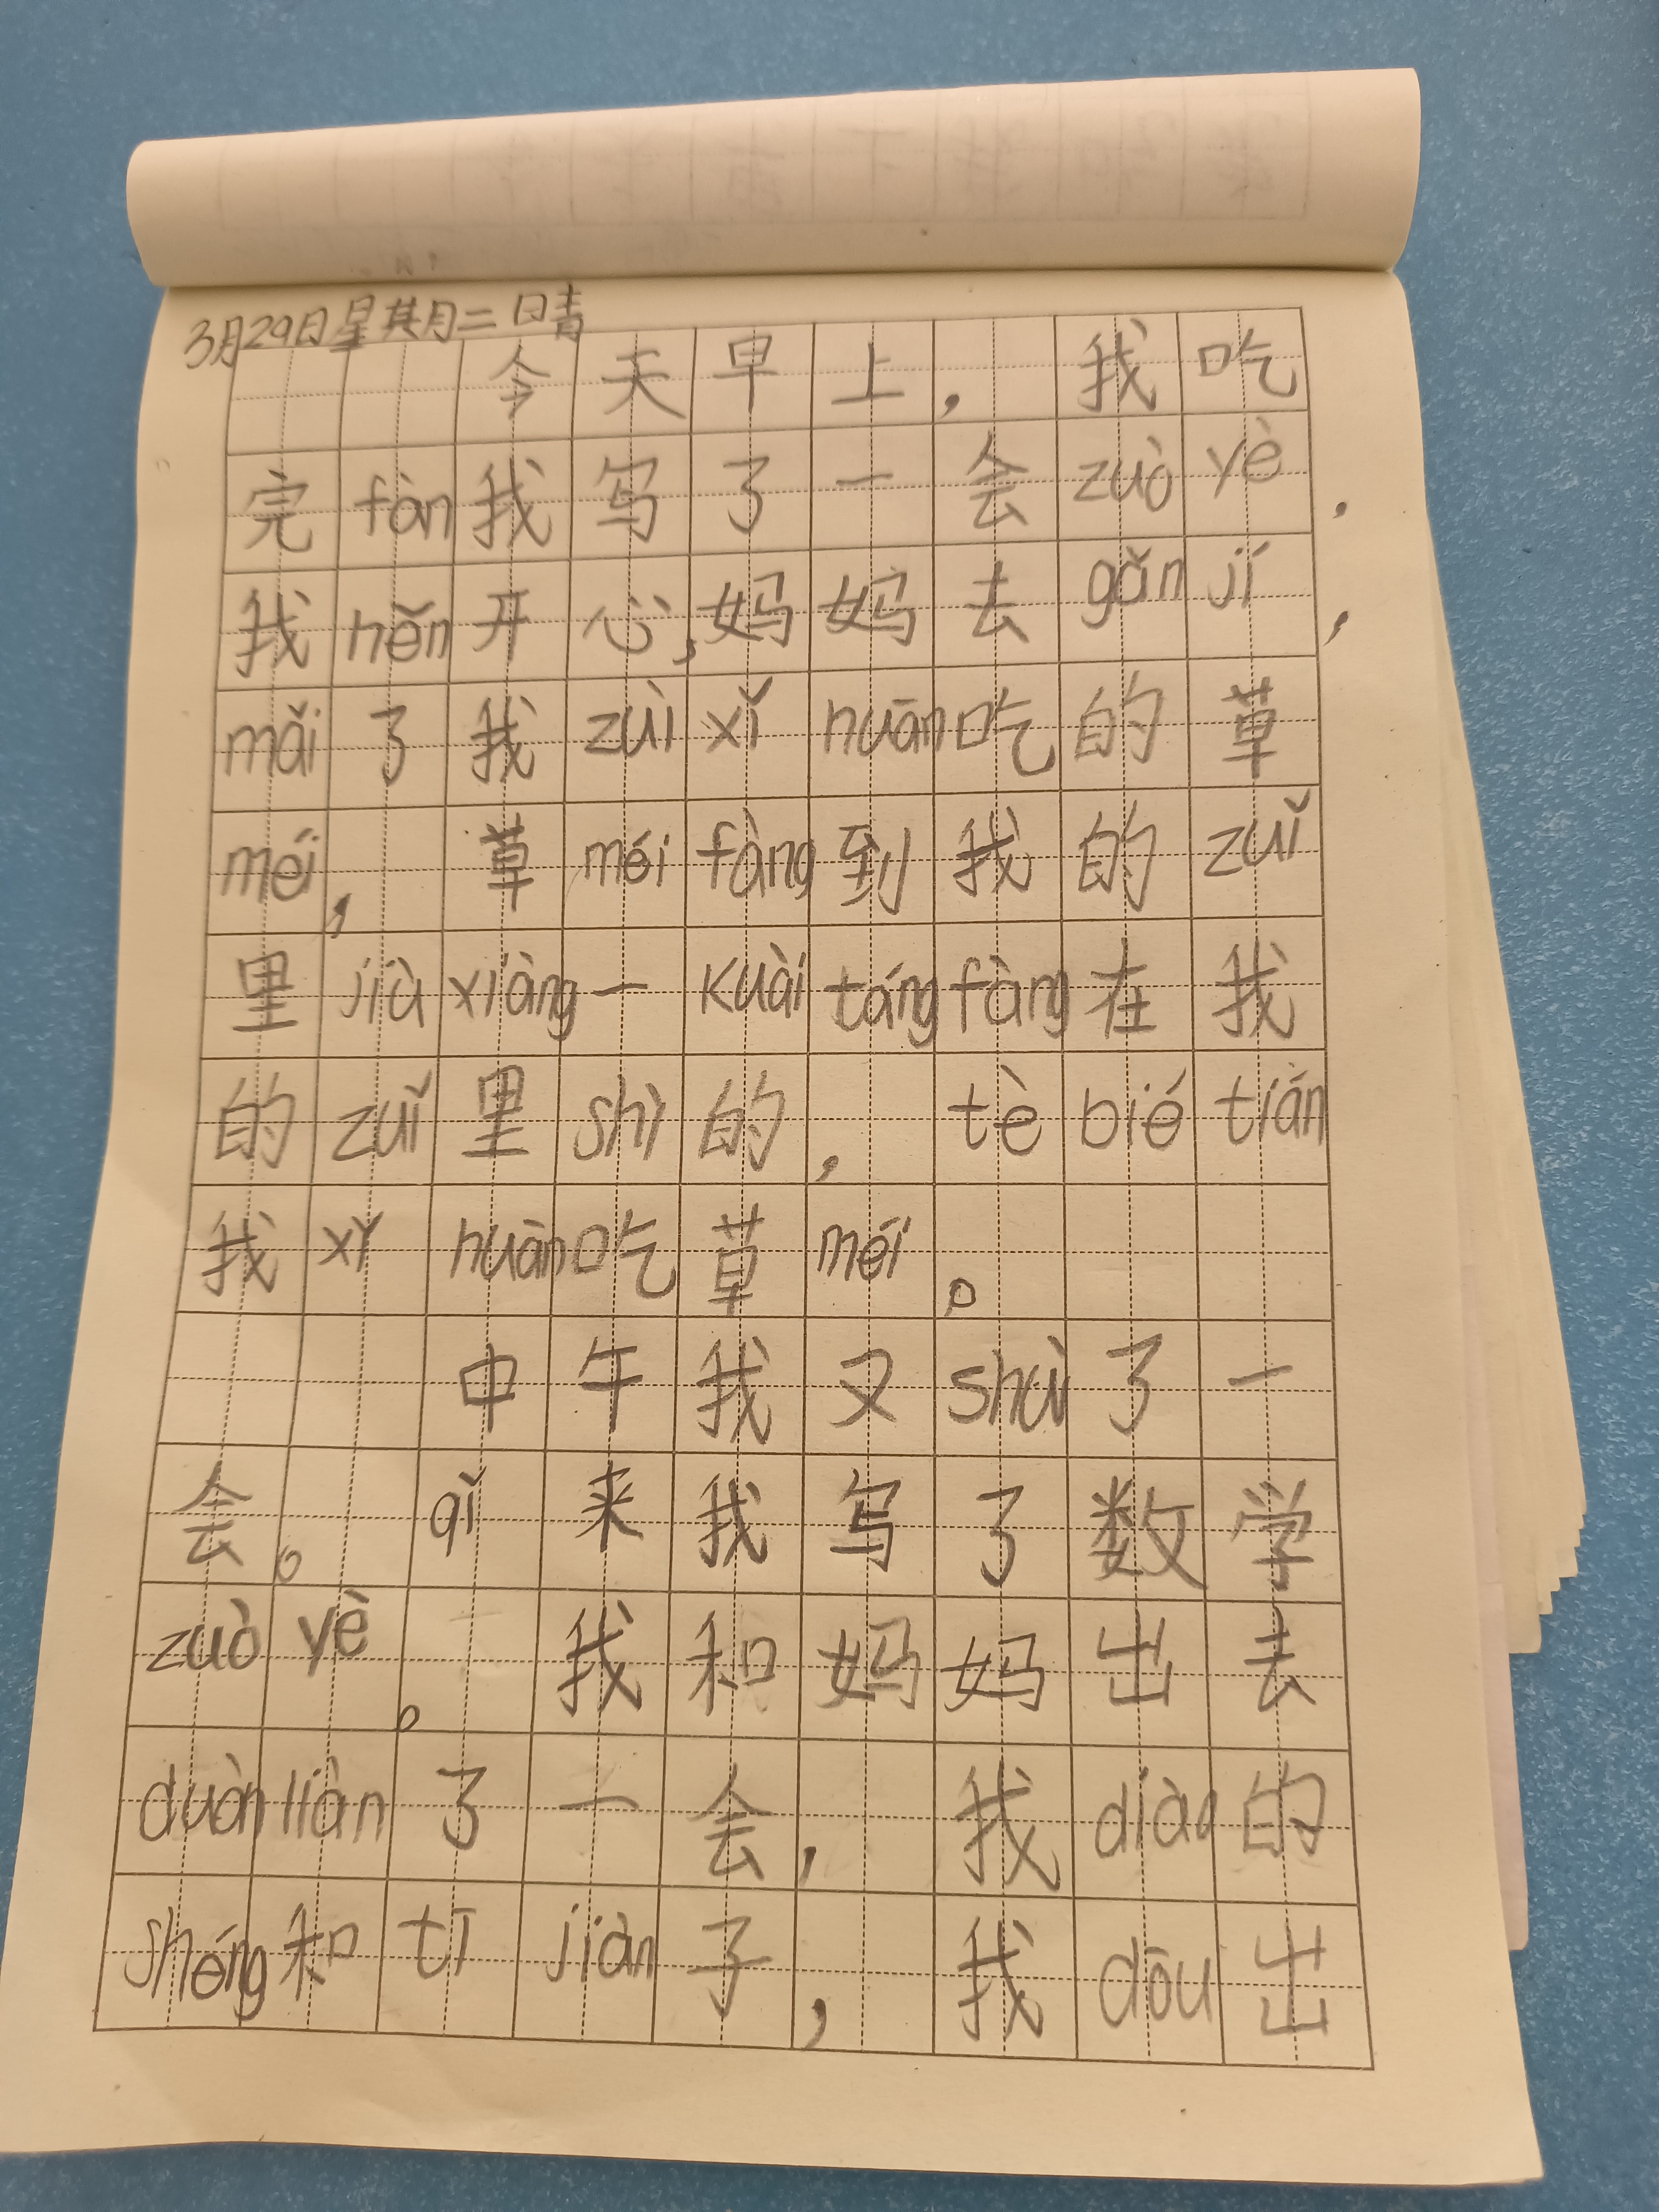 3月29日星期二 晴
今天早上，我吃
完fàn我写了一会zuò yè，
我hěn开心，妈妈去gǎn jí，
mǎi了我zuì xǐ huān吃的草
méi，草méi fàng到我的zuǐ
里jiù xiàng一kuài táng fàng在我
的zuǐ里shì的，tè bié tián
我xǐ huàn吃草méi。
中午我又shuì了一
会。qǐ来我写了数学
zuò yè。我和妈妈出去
duàn liàn了一会，我diào的
shéng和tī jiàn子，我dōu出